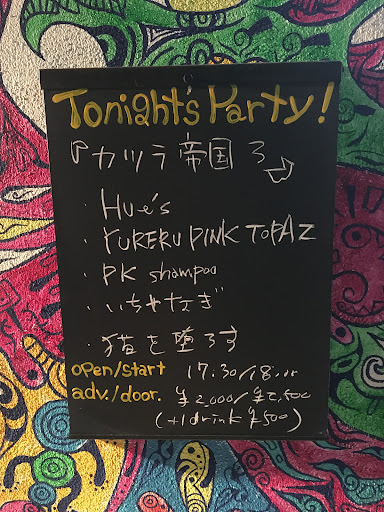 Tonight's Party!
『カツラ帝国 3』
・Hue's
・YUReRU PINK TOPAZ
・PK shampoo
・いちやなぎ
・猫を堕ろす
open/start 17:30/18:00
adv./door. ¥2,000/¥2,500
(+1drink ¥500)